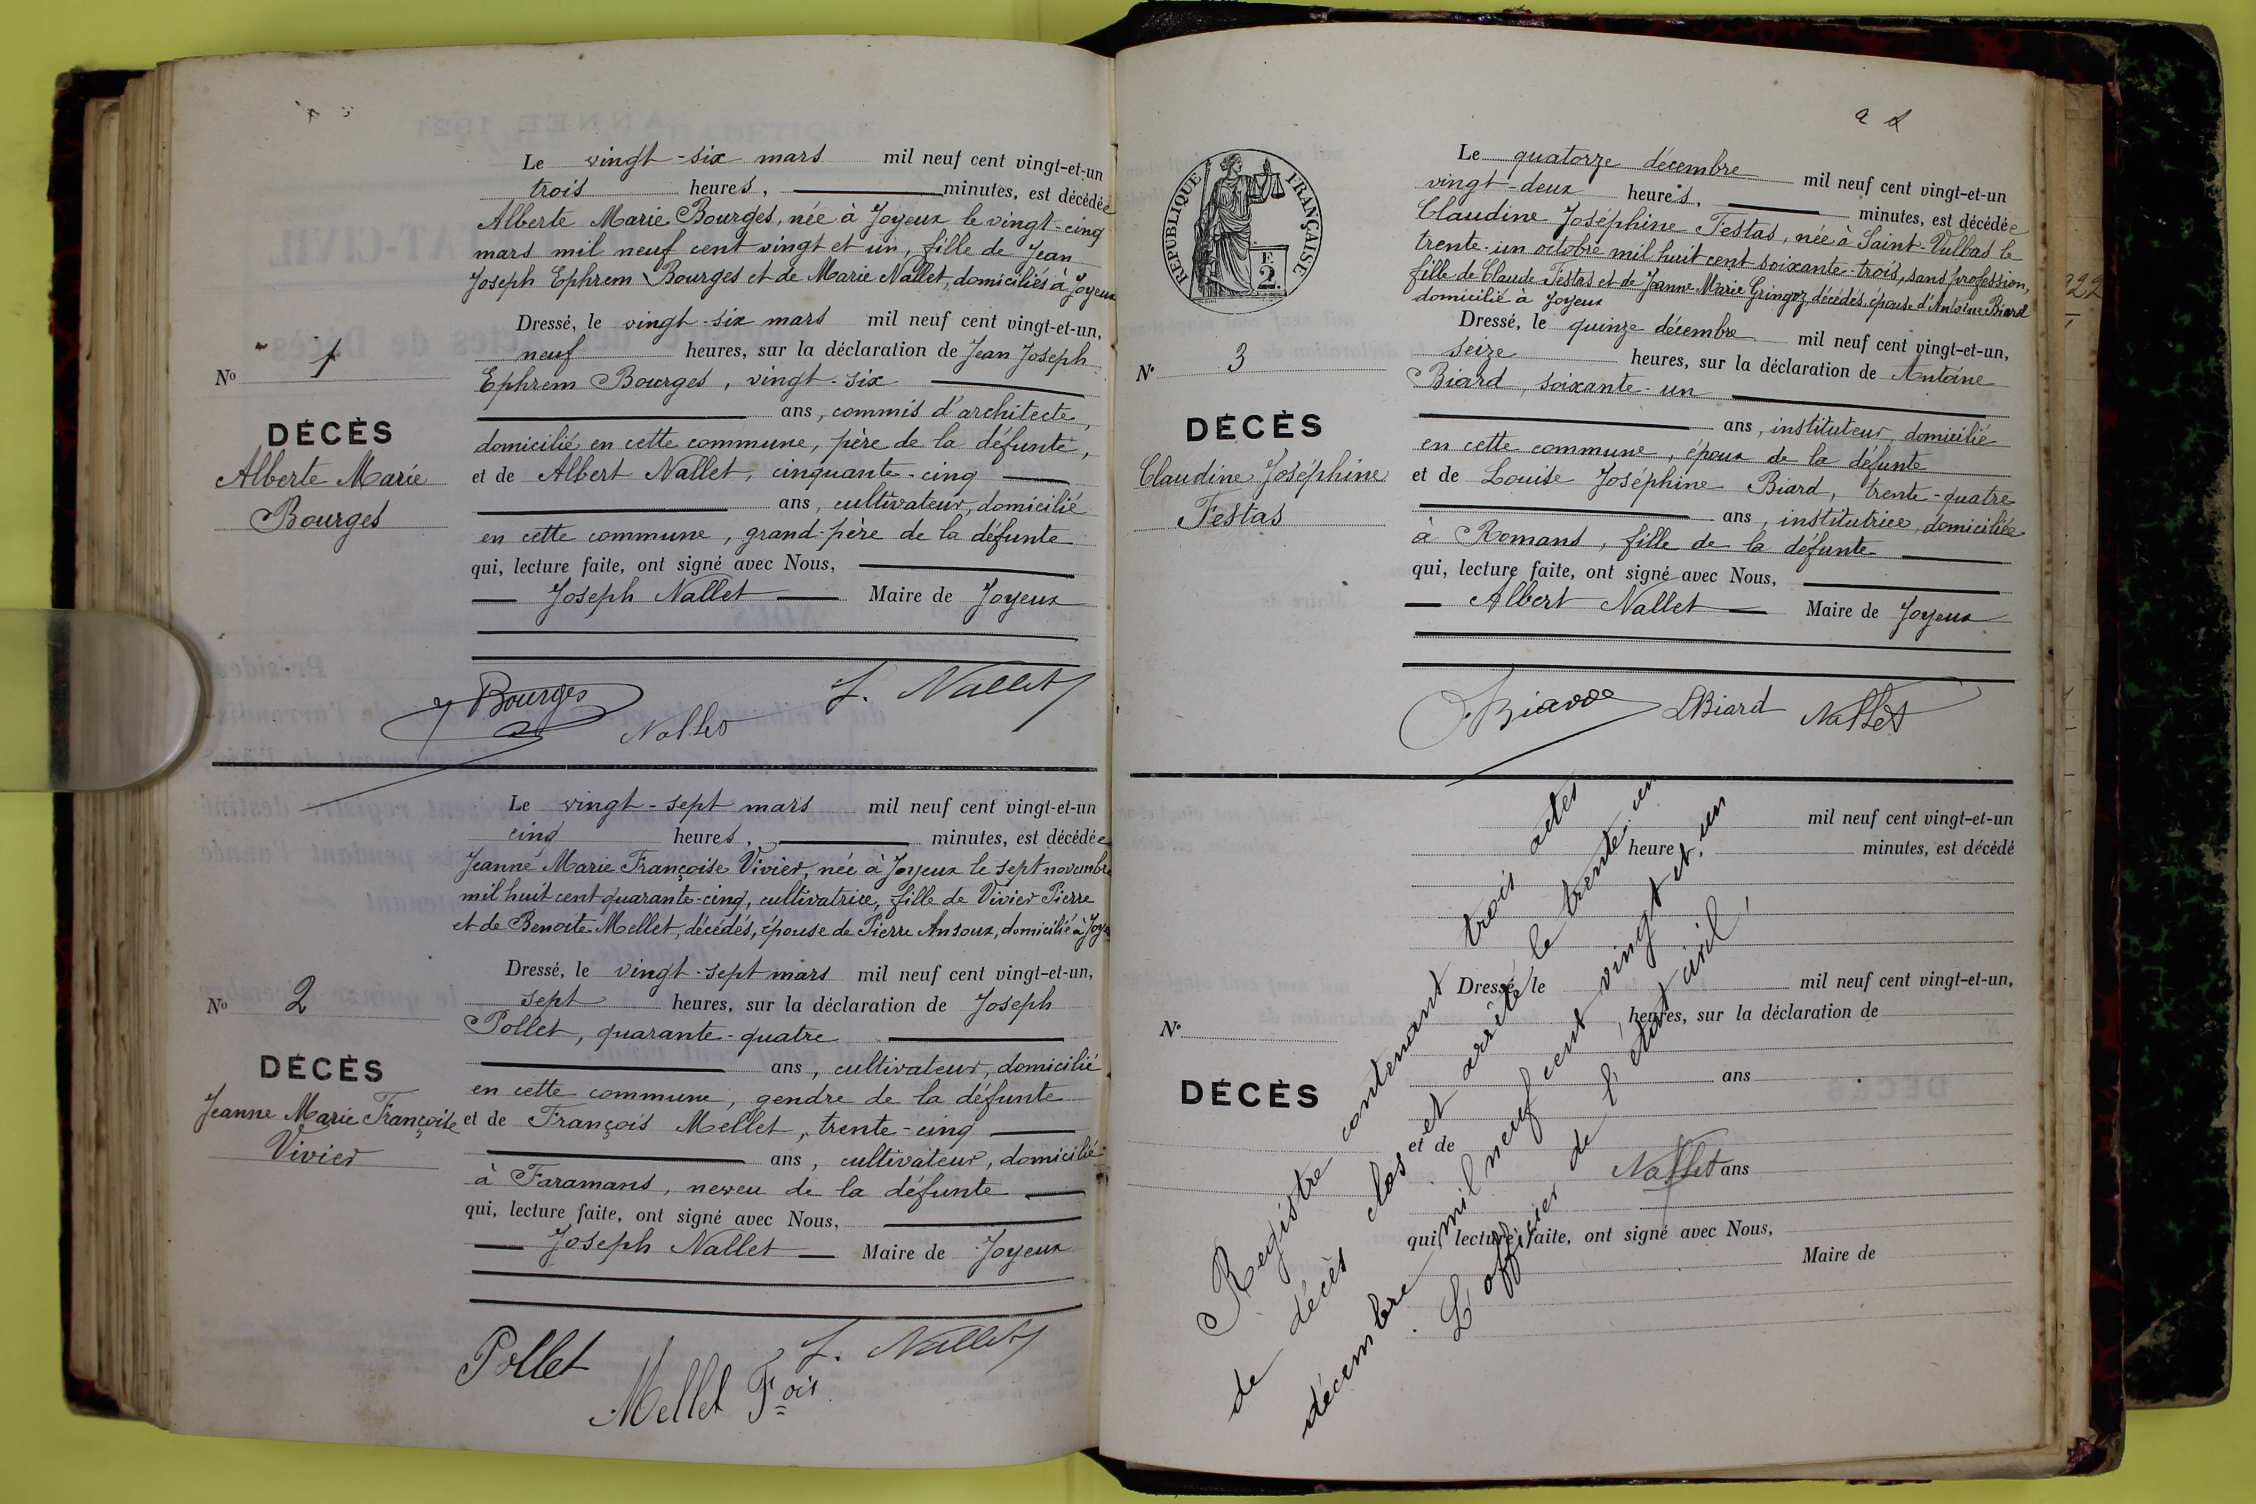 Le vingt-six mars mil neuf cent vingt-et-un
trois heures, minutes, est décédée
Alberte Marie Bourges, née à Joyeux le vingt-cinq
mars mil neuf cent vingt et un, fille de Jean
Joseph Ephrem Bourges et de Marie Nallet, domiciliés à Joyeux
Dressé, le vingt-six mars mil neuf cent vingt-et-un,
neuf heures, sur la déclaration de Jean Joseph
Ephrem Bourges, vingt-six
ans, commis d'architecte,
domicilié en cette commune, père de la défunte,
et de Albert Nallet, cinquante-cinq
ans, cultivateur, domicilié
en cette commune, grand-père de la défunte
qui, lecture faite, ont signé avec Nous,
Joseph Nallet Maire de Joyeux
No 1
DÉCÈS
Alberte Marie
Bourges
J Bourges Nallet J. Nallet
Le vingt-sept mars mil neuf cent vingt-et-un
cinq heures, minutes, est décédée
Jeanne Marie Françoise Vivier, née à Joyeux le sept novembre
mil huit cent quarante-cinq, cultivatrice, fille de Vivier Pierre
et de Benoite Mellet, décédés, épouse de Pierre Ansoux, domicilié à Joye
Dressé, le vingt-sept mars mil neuf cent vingt-et-un,
sept heures, sur la déclaration de Joseph
Pollet, quarante-quatre
ans, cultivateur, domicilié
en cette commune, gendre de la défunte
et de François Mellet, trente-cinq
ans, cultivateur, domicilié
à Faramans, neveu de la défunte
qui, lecture faite, ont signé avec Nous,
Joseph Nallet Maire de Joyeux
No 2
DÉCÈS
Jeanne Marie Françoise
Vivier
Pollet Mellet Fois J. Nallet
RÉPUBLIQUE FRANÇAISE
E
2.
Le quatorze décembre mil neuf cent vingt-et-un
vingt-deux heures, minutes, est décédée
Claudine Joséphine Testas, née à Saint-Vulbas le
trente-un octobre mil huit cent soixante-trois, sans profession,
fille de Claude Testas et de Jeanne-Marie Gringoz, décédés, épouse d'Antoine Biard
domicilié à Joyeux
Dressé, le quinze décembre mil neuf cent vingt-et-un,
seize heures, sur la déclaration de Antoine
Biard, soixante-un
ans, instituteur, domicilié
en cette commune, époux de la défunte
et de Louise Joséphine Biard, trente-quatre
ans, institutrice, domiciliée
à Romans, fille de la défunte
qui, lecture faite, ont signé avec Nous,
Albert Nallet Maire de Joyeux
No 3
DÉCÈS
Claudine Joséphine
Testas
Biard LBiard Nallet
mil neuf cent vingt-et-un
heure, minutes, est décédé
Dressé, le mil neuf cent vingt-et-un,
heures, sur la déclaration de
ans
et de
ans
qui, lecture faite, ont signé avec Nous,
Maire de
No
DÉCÈS
Registre contenant trois actes
de décès clos et arrêté le trente-un
décembre mil neuf cent vingt et un
L'officier de l'état civil,
Nallet